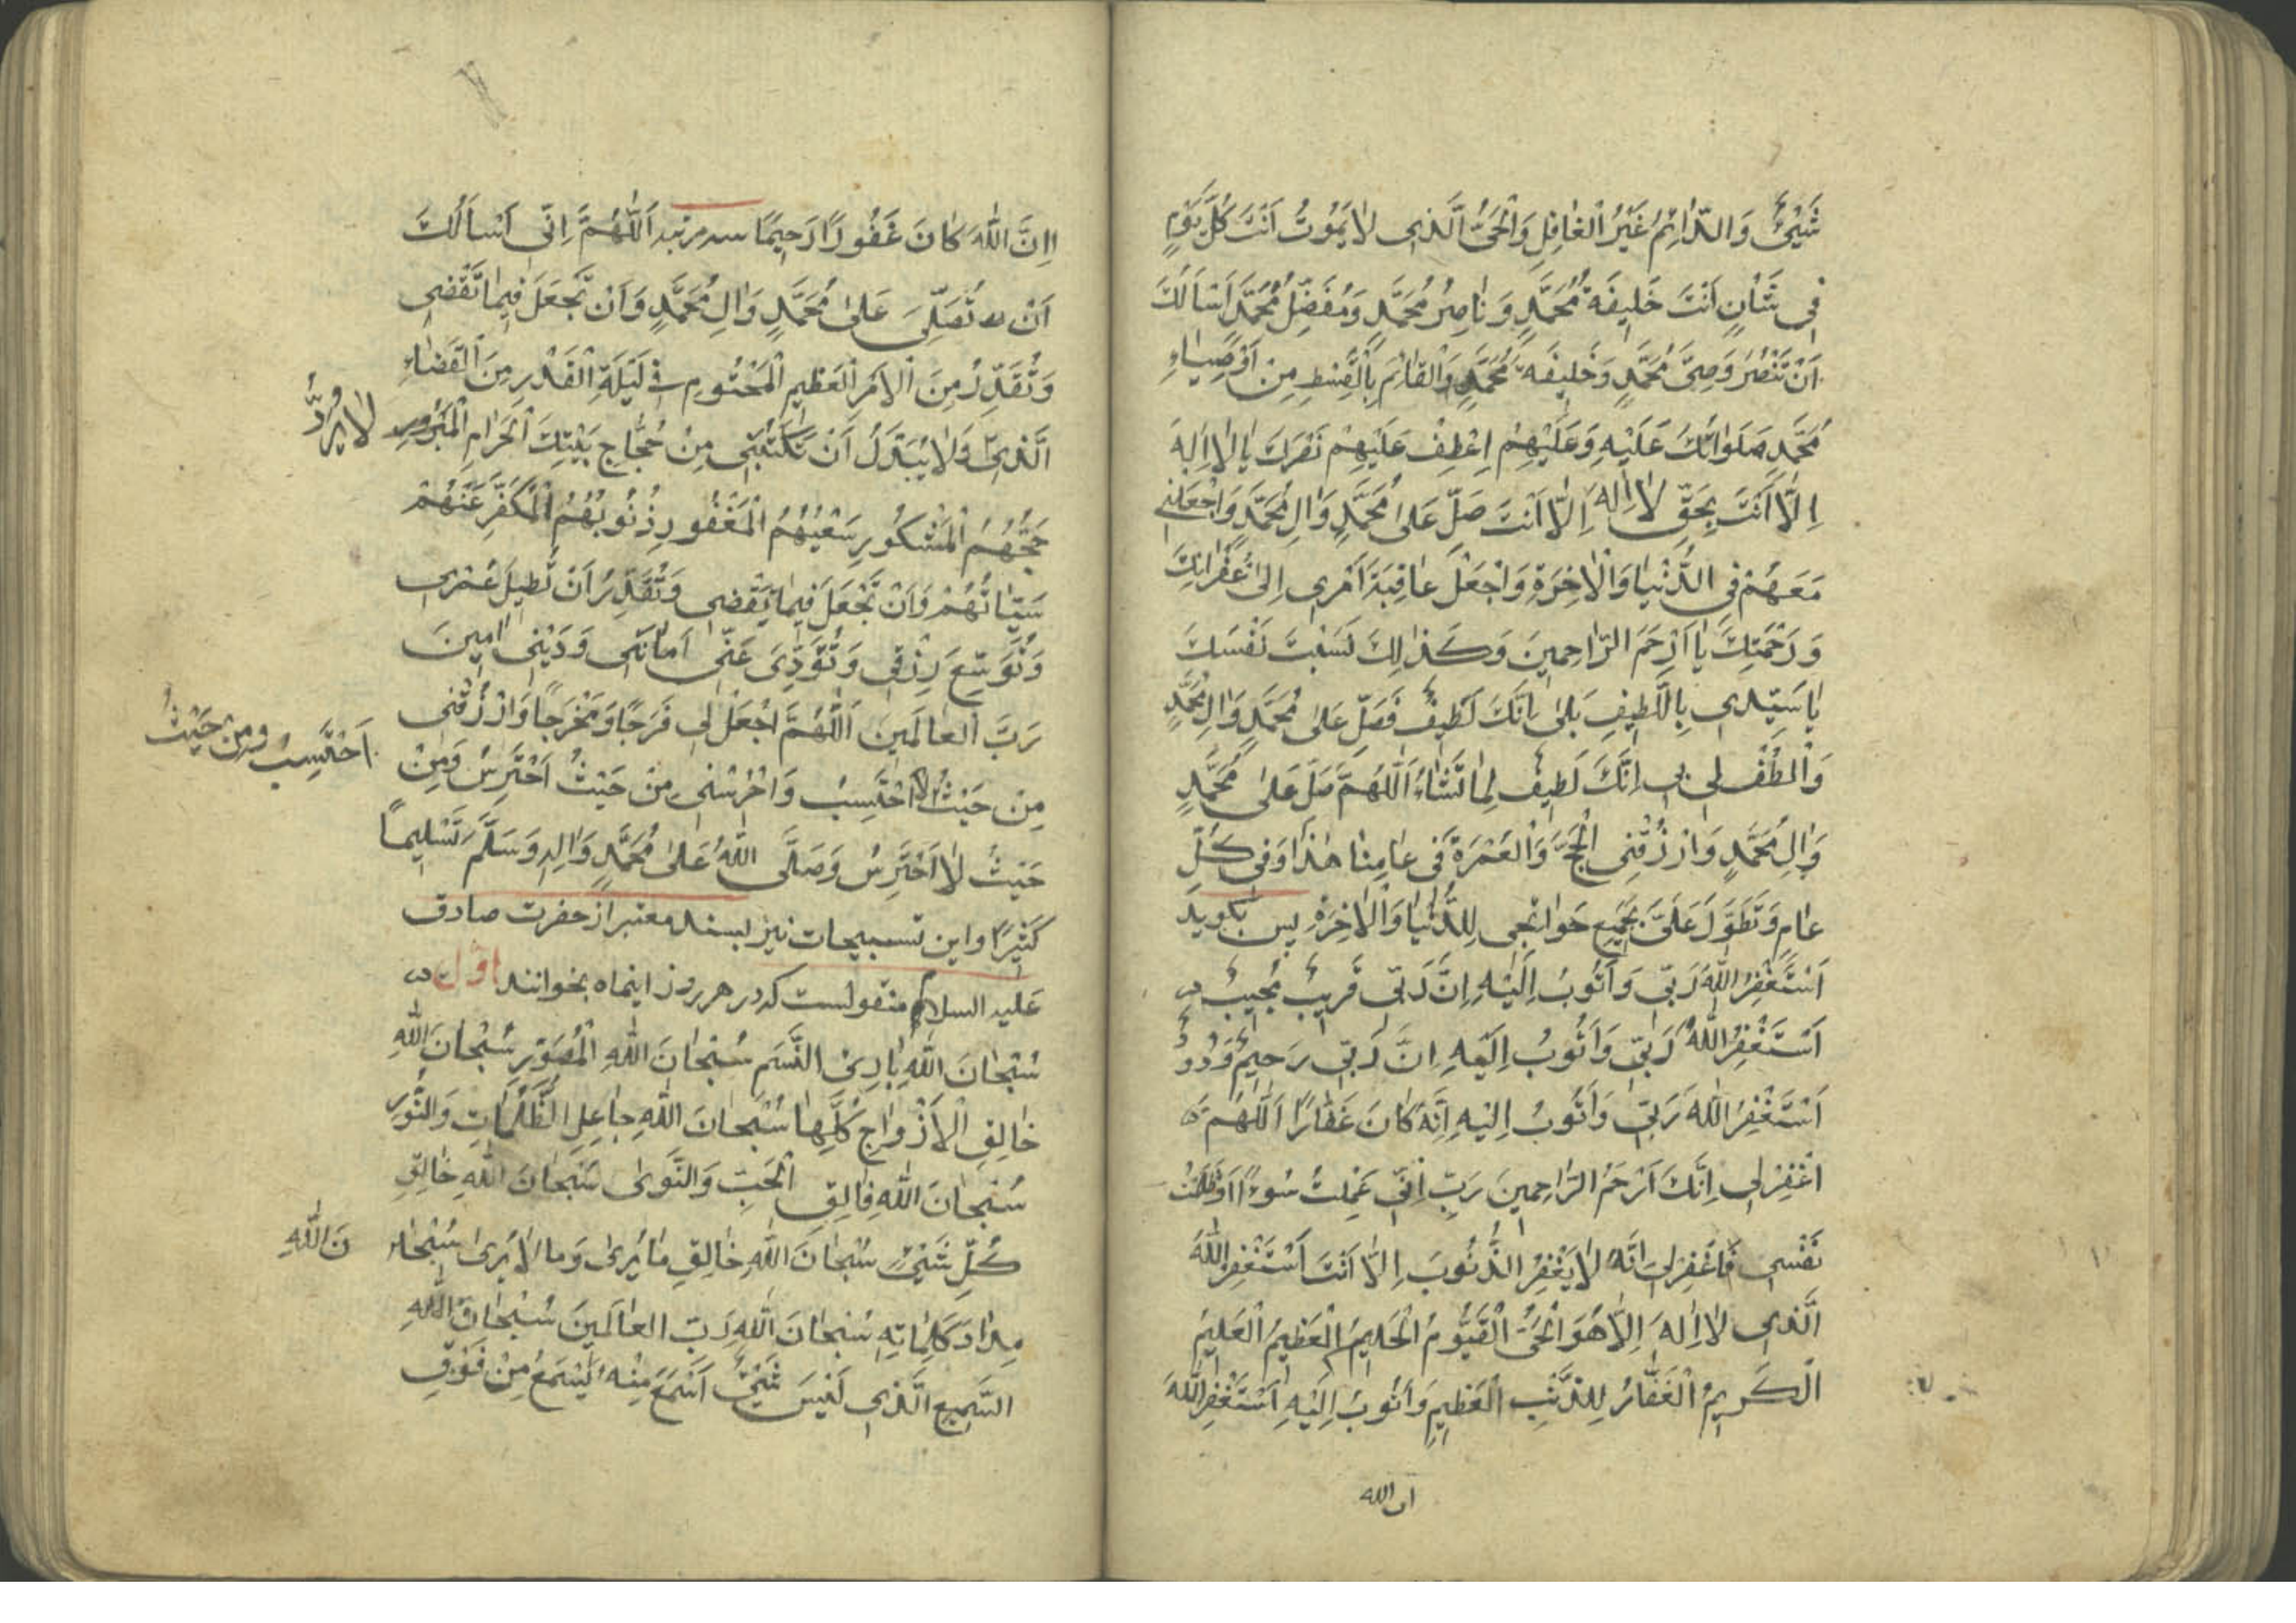 شَيْئٌ وَالدّٰائِمُ غَيْرُ الْغٰافِلِ وَالْحَىُّ الَّذٖى لٰا يَمُوتُ اَنْتَ كُلَّ يَوْمٍ
فٖى شَأنٍ اَنْتَ خَلٖيفَةُ مُحَمَّدٍ وَ نٰاصِرُ مُحَمَّدٍ وَمُفَضِّلُ مُحَمَّدٍ اَسْاَلُكَ
اَنْ تَنْصُرَ وَصِىَّ مُحَمَّدٍ وَخَلٖيفَةَ مُحَمَّدٍ وَالْقٰائِمَ بِالْقِسْطِ مِنْ اَوْصِيٰاءِ
مُحَمَّدٍ صَلَوٰاتُكَ عَلَيْهِ وَعَلَيْهِمْ اِعْطِفْ عَلَيْهِمْ نَصْرَكَ يٰا لٰا اِلٰهَ
اِلّٰا اَنْتَ بِحَقِّ لٰا اِلٰهَ اِلّٰا اَنْتَ صَلِّ عَلىٰ مُحَمَّدٍ وَاٰلِ مُحَمَّدٍ وَاجْعَلْنٖى
مَعَهُمْ فِى الدُّنْيٰا وَالْاٰخِرَةِ وَاجْعَلْ عٰاقِبَةَ اَمْرٖى اِلىٰ غُفْرٰانِكَ
وَ رَحْمَتِكَ يٰا اَرْحَمَ الرّٰاحِمٖينَ وَكَذٰلِكَ نَسَبْتَ نَفْسَكَ
يٰا سَيِّدٖى بِاللَّطٖيفِ بَلىٰ اِنَّكَ لَطٖيفٌ فَصَلِّ عَلىٰ مُحَمَّدٍ وَاٰلِ مُحَمَّدٍ
وَالْطُفْ لٖى بٖى اِنَّكَ لَطٖيفٌ لِمٰا تَشٰاءُ اَللّٰهُمَّ صَلِّ عَلىٰ مُحَمَّدٍ
وَاٰلِ مُحَمَّدٍ وَارْزُقْنِى الْحَجَّ وَالْعُمْرَةَ فٖى عٰامِنٰا هٰذٰا وَفٖى كُلِّ
عٰامٍ وَتَطَوَّلْ عَلَىَّ بِجَمٖيعِ حَوٰائِجٖى لِلدُّنْيٰا وَالْاٰخِرَةِ پس بگويد
اَسْتَغْفِرُ اللّٰهَ رَبّٖى وَاَتُوبُ اِلَيْهِ اِنَّ رَبّٖى قَرٖيبٌ مُجٖيبٌ
اَسْتَغْفِرُ اللّٰهَ رَبّٖى وَاَتُوبُ اِلَيْهِ اِنَّ رَبّٖى رَحٖيمٌ وَدُودٌ
اَسْتَغْفِرُ اللّٰهَ رَبّٖى وَاَتُوبُ اِلَيْهِ اِنَّهُ كٰانَ غَفّٰارًا اَللّٰهُمَّ
اغْفِرْ لٖى اِنَّكَ اَرْحَمُ الرّٰاحِمٖينَ رَبِّ اِنّٖى عَمِلْتُ سُوءًا اَوْ ظَلَمْتُ
نَفْسٖى فَاغْفِرْ لٖى اِنَّهُ لٰا يَغْفِرُ الذُّنُوبَ اِلّٰا اَنْتَ اَسْتَغْفِرُ اللّٰهَ
الَّذٖى لٰا اِلٰهَ اِلّٰا هُوَ الْحَىُّ الْقَيُّومُ الْحَلٖيمُ الْعَظٖيمُ الْعَلٖيمُ
الْكَرٖيمُ الْغَفّٰارُ لِلذَّنْبِ الْعَظٖيمِ وَاَتُوبُ اِلَيْهِ اَسْتَغْفِرُ اللّٰهَ
ان الله
اِنَّ اللّٰهَ كٰانَ غَفُورًا رَحٖيمًا سه مرتبه اَللّٰهُمَّ اِنّٖى اَسْاَلُكَ
اَنْ تُصَلِّىَ عَلىٰ مُحَمَّدٍ وَاٰلِ مُحَمَّدٍ وَاَنْ تَجْعَلَ فٖيمٰا تَقْضٖى
وَتُقَدِّرُ مِنَ الْاَمْرِ الْعَظٖيمِ الْمَحْتُومِ فٖى لَيْلَةِ الْقَدْرِ مِنَ الْقَضٰاءِ
الَّذٖى وَلٰا يُبَدَّلُ اَنْ تَكْتُبَنٖى مِنْ حُجّٰاجِ بَيْتِكَ الْحَرٰامِ الْمَبْرُورِ
لٰا يُرَدُّ
حَجُّهُمُ الْمَشْكُورِ سَعْيُهُمُ الْمَغْفُورِ ذُنُوبُهُمُ الْمُكَفَّرِ عَنْهُمْ
سَيِّئٰاتُهُمْ وَاَنْ تَجْعَلَ فٖيمٰا تَقْضٖى وَتُقَدِّرُ اَنْ تُطٖيلَ عُمْرٖى
وَتُوَسِّعَ رِزْقٖى وَتُؤَدِّىَ عَنّٖى اَمٰانَتٖى وَدَيْنٖى اٰمٖينَ
رَبَّ الْعٰالَمٖينَ اَللّٰهُمَّ اجْعَلْ لٖى فَرَجًا وَمَخْرَجًا وَارْزُقْنٖى
مِنْ حَيْثُ لٰا اَحْتَسِبُ وَاحْرُسْنٖى مِنْ حَيْثُ اَحْتَرِسُ وَمِنْ
اَحْتَسِبُ وَمِنْ حَيْثُ
حَيْثُ لٰا اَحْتَرِسُ وَصَلَّى اللّٰهُ عَلىٰ مُحَمَّدٍ وَاٰلِهٖ وَسَلَّمَ تَسْلٖيمًا
كَثٖيرًا و اين تسبيحات نيز بسند معتبر از حضرت صادق
عليه السلام منقولست كه در هر روز اينماه بخوانند اوّل
سُبْحٰانَ اللّٰهِ بٰارِئِ النَّسَمِ سُبْحٰانَ اللّٰهِ الْمُصَوِّرِ سُبْحٰانَ اللّٰهِ
خٰالِقِ الْاَزْوٰاجِ كُلِّهٰا سُبْحٰانَ اللّٰهِ جٰاعِلِ الظُّلُمٰاتِ وَالنُّورِ
سُبْحٰانَ اللّٰهِ فٰالِقِ الْحَبِّ وَالنَّوىٰ سُبْحٰانَ اللّٰهِ خٰالِقِ
كُلِّ شَيْئٍ سُبْحٰانَ اللّٰهِ خٰالِقِ مٰا يُرىٰ وَمٰا لٰا يُرىٰ سُبْحٰا
نَ اللّٰهِ
مِدٰادَ كَلِمٰاتِهٖ سُبْحٰانَ اللّٰهِ رَبِّ الْعٰالَمٖينَ سُبْحٰانَ اللّٰهِ
السَّمٖيعِ الَّذٖى لَيْسَ شَيْئٌ اَسْمَعَ مِنْهُ يَسْمَعُ مِنْ فَوْقِ